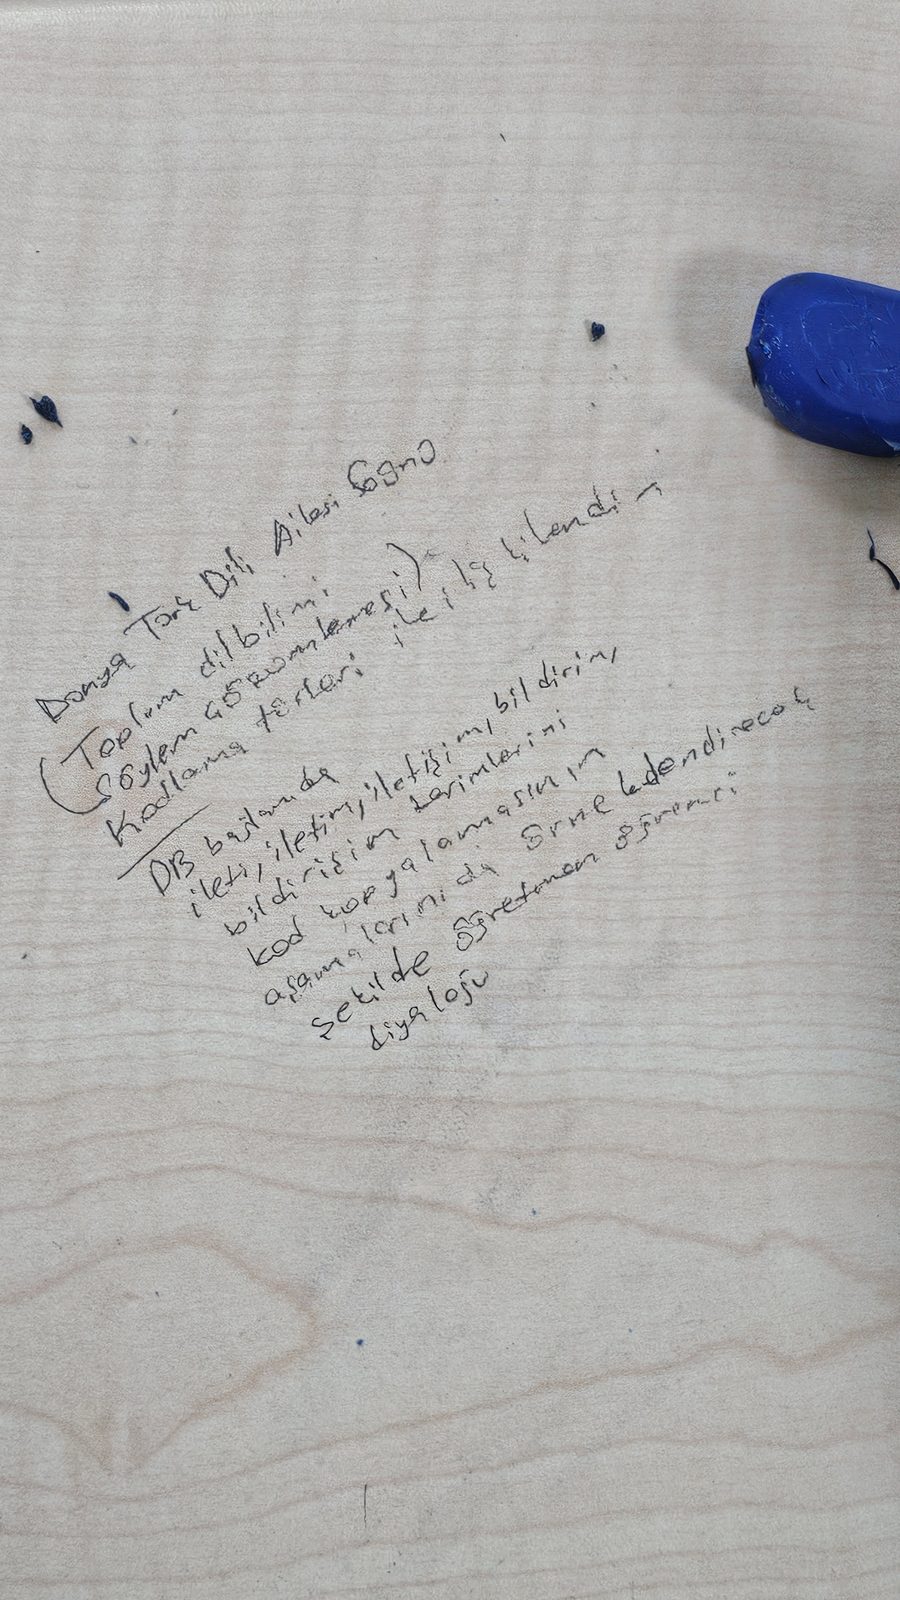 Dünya Türk Dili Ailesi Günü
(Toplum dilbilimi
Söylem Çözümlemesi)
Kodlama türleri ile ilişkilendirin
DB bağlamında
ileti, iletim, iletişim, bildirim,
bildirişim terimlerini
kod kopyalamasının
aşamalarını da örneklendirecek
şekilde öğretmen öğrenci
diyaloğu